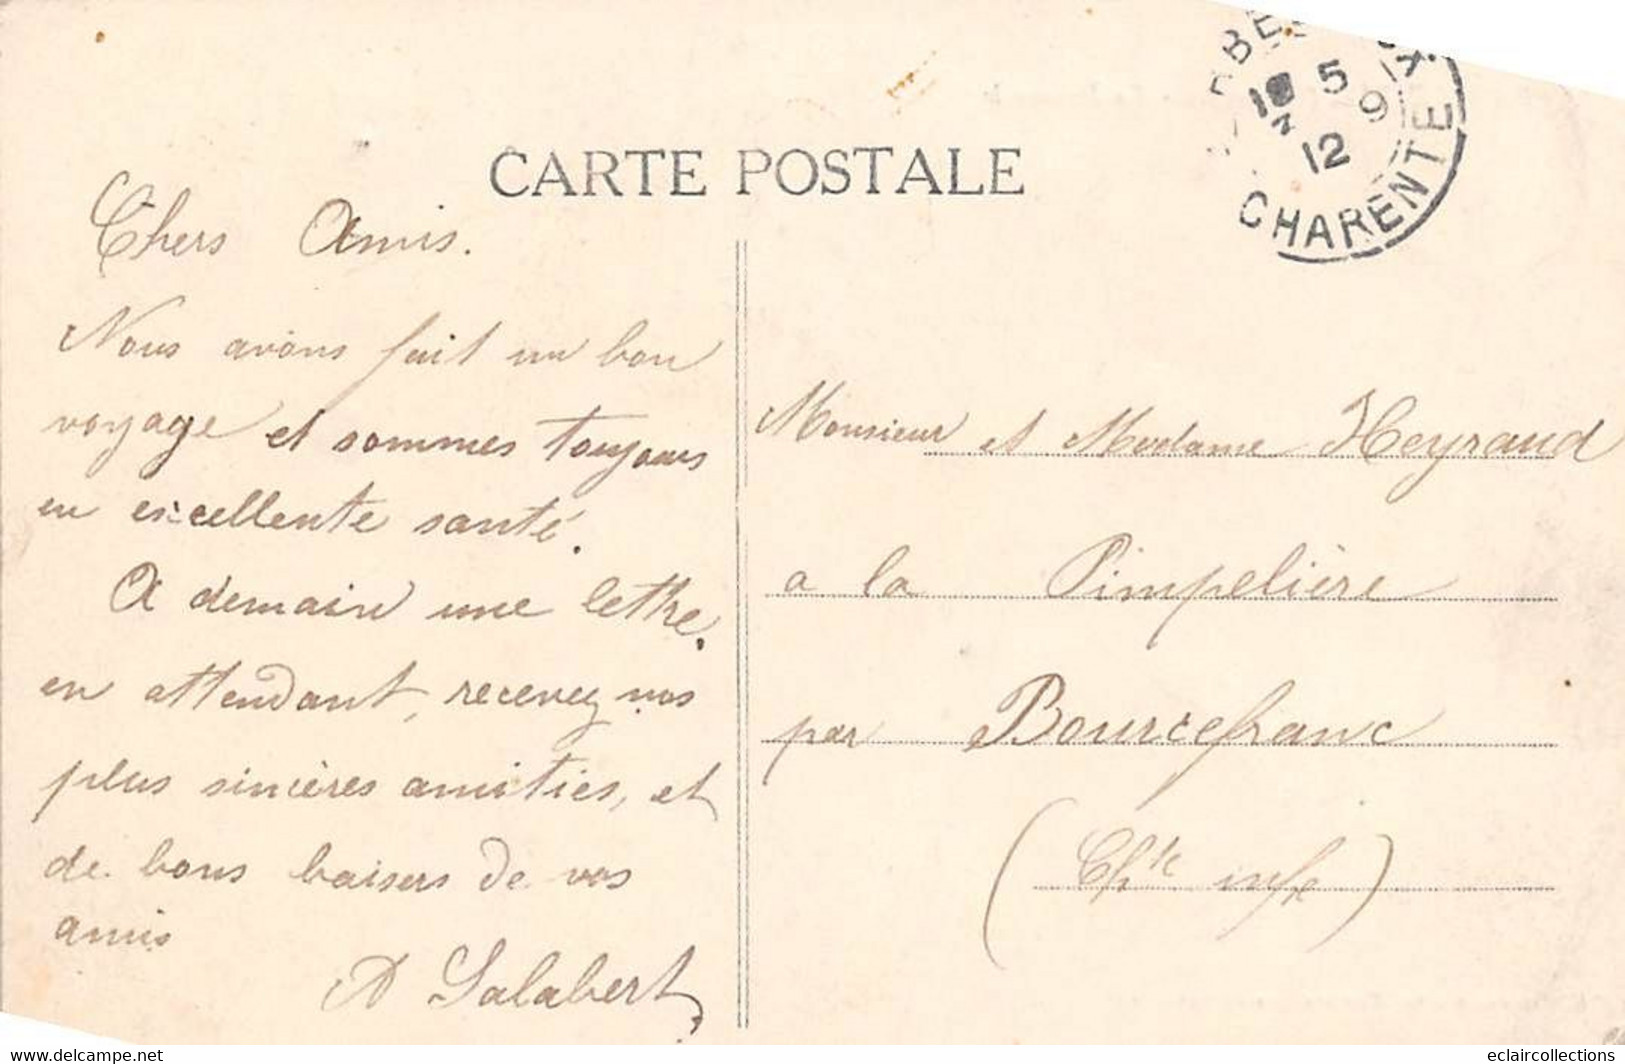 CARTE POSTALE
5
9
12
CHARENTE
Chers Amis.
Nous avons fait un bon
voyage et sommes toujours
en excellente santé.
A demain une lettre,
en attendant, recevez nos
plus sincères amitiés, et
de bons baisers de vos
amis
A Salabert
Monsieur et Madame Heyraud
a la Pimpelière
par Bourcefranc
(Chte infre)
www.delcampe.net
eclaircollections